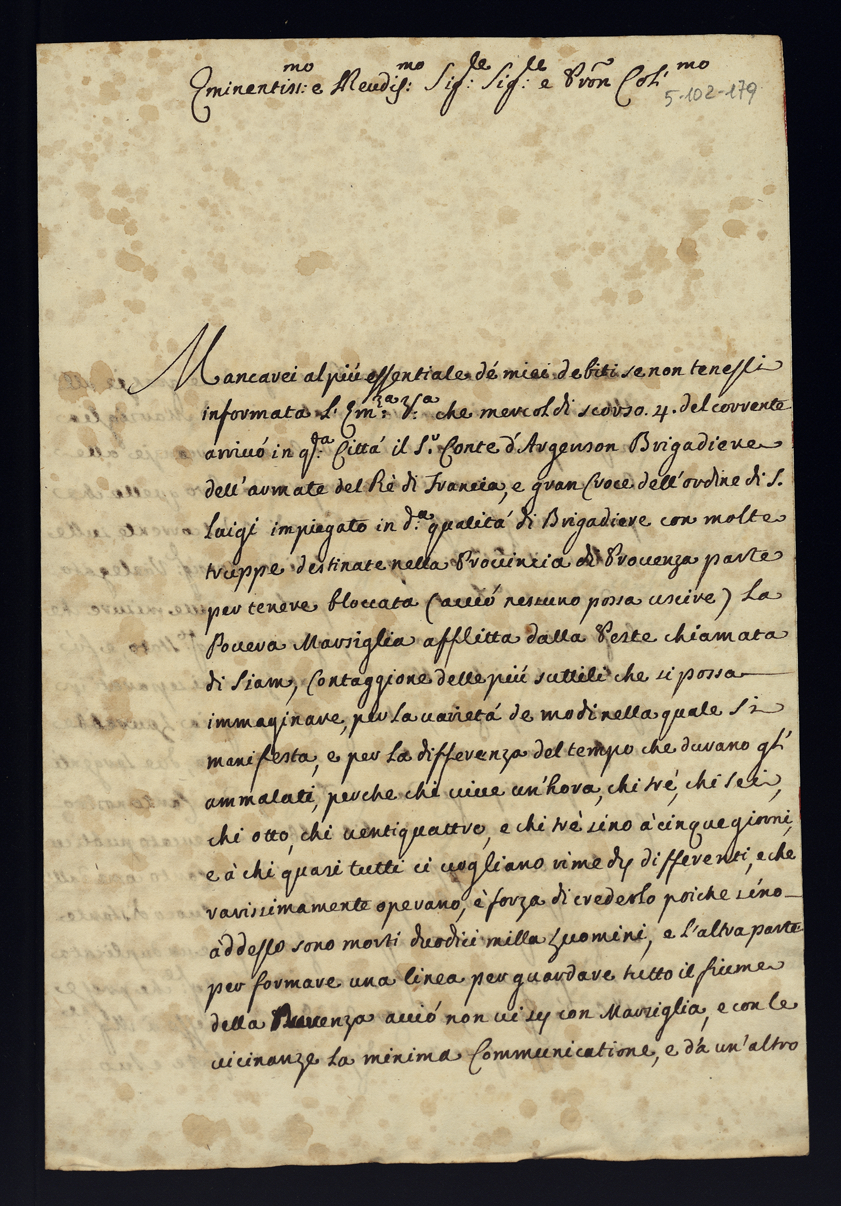 Eminentiss:mo e Reudiss:mo Sig:le Sig:le e Pron Col:mo
5-102-179
Mancarei al piú essentiale dé miei debiti se non tenessi
informata L'Em:za V:a che mercoldi scorso .4. del corrente
arriuó in q:ta Cittá il S.r Conte d'Argenson Brigadiere
dell'armate del Ré di Francia, e gran Croce dell'ordine di S.
Luigi impiegato in d:a qualitá di Brigadiere con molte
truppe destinate nella Prouincia di Prouenza parte
per tenere bloccata (acció nessuno possa uscire) La
Pouera Marsiglia afflitta dalla Peste chiamata
di Siam, Contaggione delle piú suttili che si possa
immaginare, per la uarietá de modi nella quale si
manifesta, e per la differenza del tempo che durano gl'
ammalati, perche chi uiue un'hora, chi tré, chi sei,
chi otto, chi uentiquattro, e chi tré sino à cinque giorni,
e à chi quasi tutti ci uogliano rimedij differenti, e che
rarissimamente operano, è forza di crederlo poiche sino
àddesso sono morti duodici milla huomini, e l'altra parte
per formare una linea per guardare tutto il fiume
della Durenza acció non ui sij con Marsiglia, e con le
uicinanze la minima Communicatione, e dà un'altro